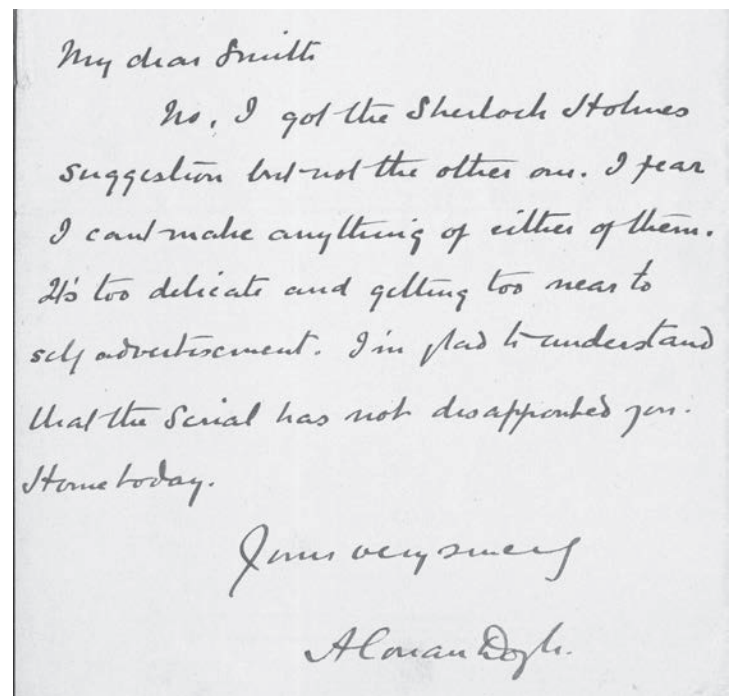 My dear Smith
No, I got the Sherlock Holmes
suggestion but not the other one. I fear
I cant make anything of either of them.
It's too delicate and getting too near to
self advertisement. I'm glad to understand
that the Serial has not disappointed you.
Home today.
Yours very sincerely
A Conan Doyle.